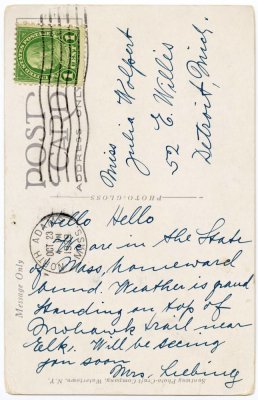 1 CENT 1
POST
CARD
ADDRESS ONLY
Miss
Julia Wolpert
52 E. Willis
Detroit, Mich.
PHOTO-GLOSS
Message Only
NORTH ADAMS
OCT 23
PM
MASS.
Hello Hello
We are in the State
of Mass, homeward
bound. Weather is grand
Standing on top of
Mohawk Trail near
Elk. Will be seeing
you soon
Mrs. Liebing
Santway Photo-Craft Company, Watertown, N.Y.